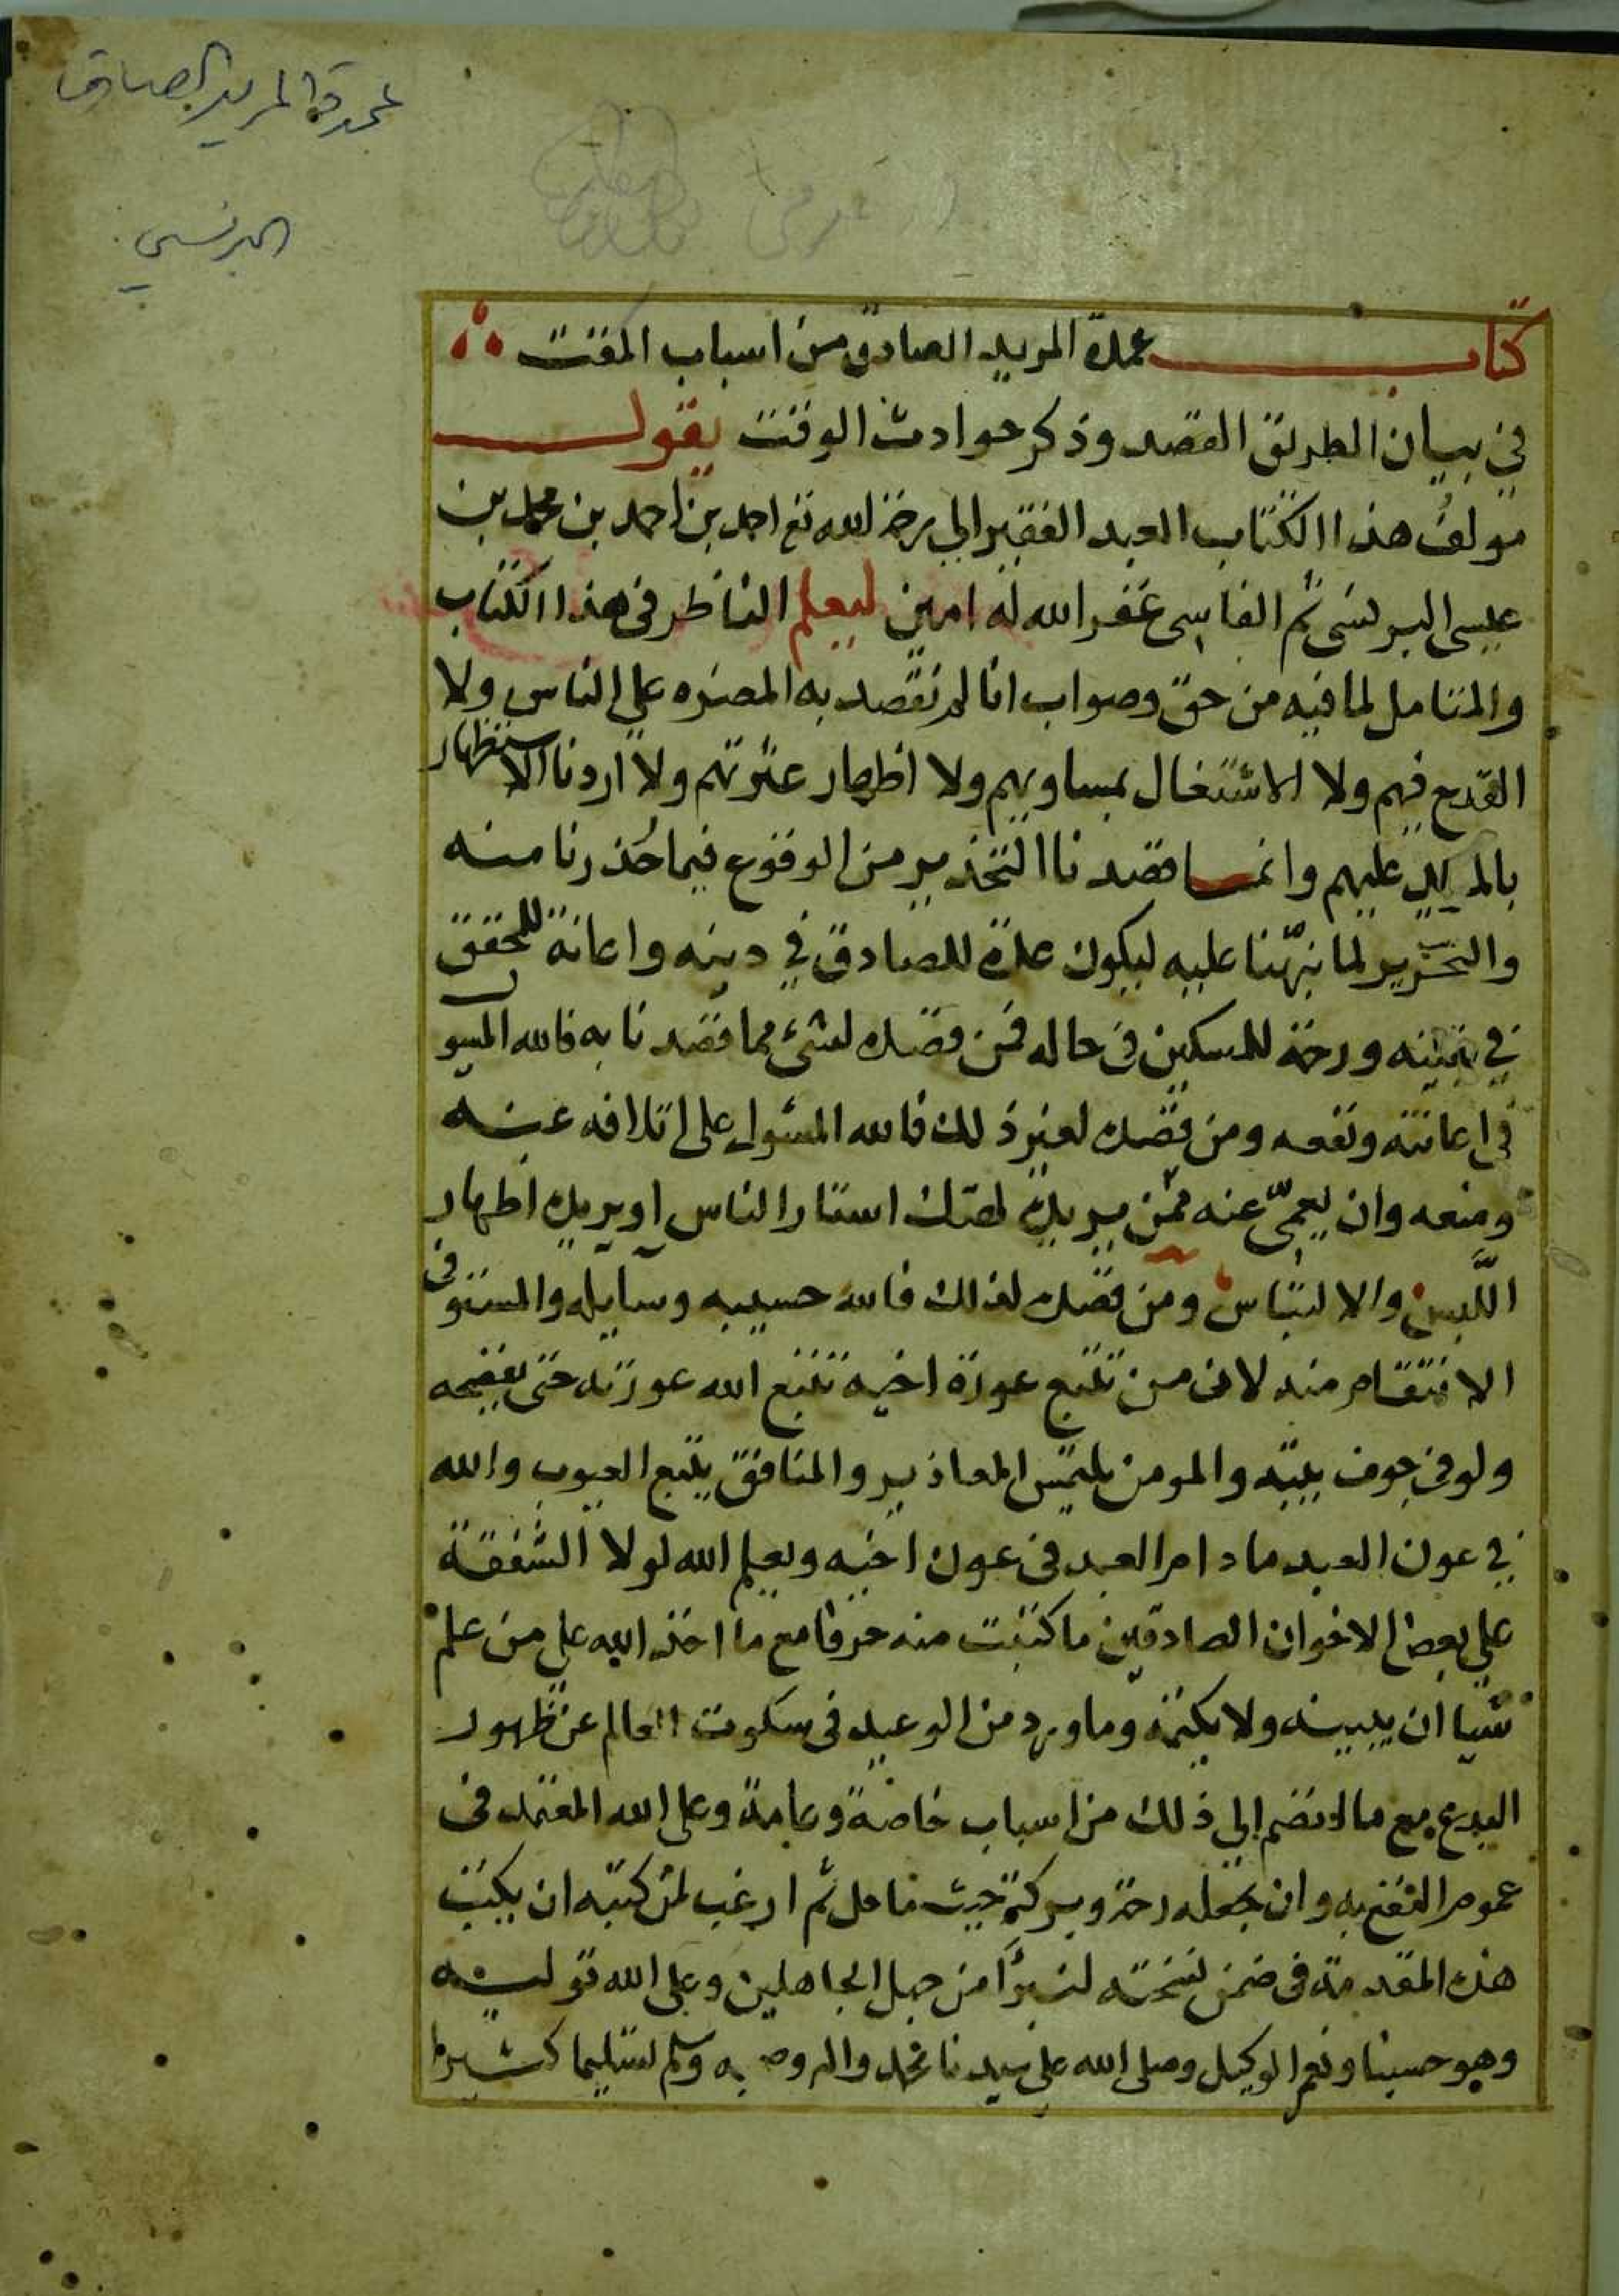 عمدة المريد الصادق
البرنسي
كتاب عمدة المريد الصادق من اسباب المقت
في بيان الطريق القصد وذكر حوادث الوقت يقول
مولف هذا الكتاب العبد الفقير الى رحمة الله تع احمد بن احمد بن محمد بن
عيسى البرنسى ثم الفاسى غفر الله له امين ليعلم الناظر فى هذا الكتاب
والمتامل لما فيه من حق وصواب انا لم نقصد به المضره على الناس ولا
القدح فيهم ولا الاشتغال بمساويهم ولا اظهار عثرتهم ولا اردنا الاستظهار
عليهم وانما قصدنا التحذير من الوقوع فيما حذرنا منه
والتحرير لما نبّهنا عليه ليكون عدة للصادق في دينه واعانة للمحقق
في يقينه ورحمة للمسكين فى حاله فمن قصده لشىء مما قصدنا به فالله المسول
فى اعانته ونفعه ومن قصده لغير ذلك فالله المسئول على اتلافه عنه
ومنعه وان يعمىّ عنه ممّن يريد لهتك استار الناس او يريد اظهار
اللَّبس والالتباس ومن قصده لذلك فالله حسيبه وسايله والمستوفى
الانتقام منه لان من تتبع عورة اخيه تتبع الله عورته حتى يفضحه
ولو فى جوف بيته والمومن يلتمس المعاذير والمنافق يتتبع العيوب والله
في عون العبد ما دام العبد فى عون اخيه ويعلم الله لولا الشفقة
على بعض الاخوان الصادقين ما كتبت منه حرفا مع ما اخذ الله على من علم
شيا ان يبينه ولا يكتمه وما ورد من الوعيد فى سكوت العالم عن ظهور
البدع مع ما انضم الى ذلك من اسباب خاصة وعامة وعلى الله المعتمد فى
عموم النفع به وان يجعله رحمة وبركة حيث ما حل ثم ارغب لمن كتبه ان يكتب
هذه المقدمة فى ضمن نسخته لنبرأ من جهل الجاهلين وعلى الله توليته
وهو حسبنا ونعم الوكيل وصلى الله على سيدنا محمد واله وصحبه وسلم تسليما كثيرا